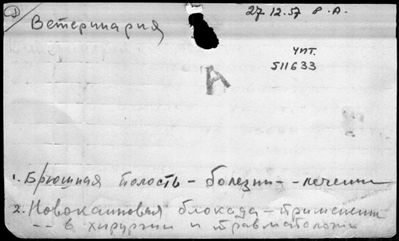 Ветеринария
27.12.57 Р.А.
чит.
511633
А
1. Брюшная полость - болезни - лечение
2. Новокаиновая блокада - применение
- в хирургии и травматологии